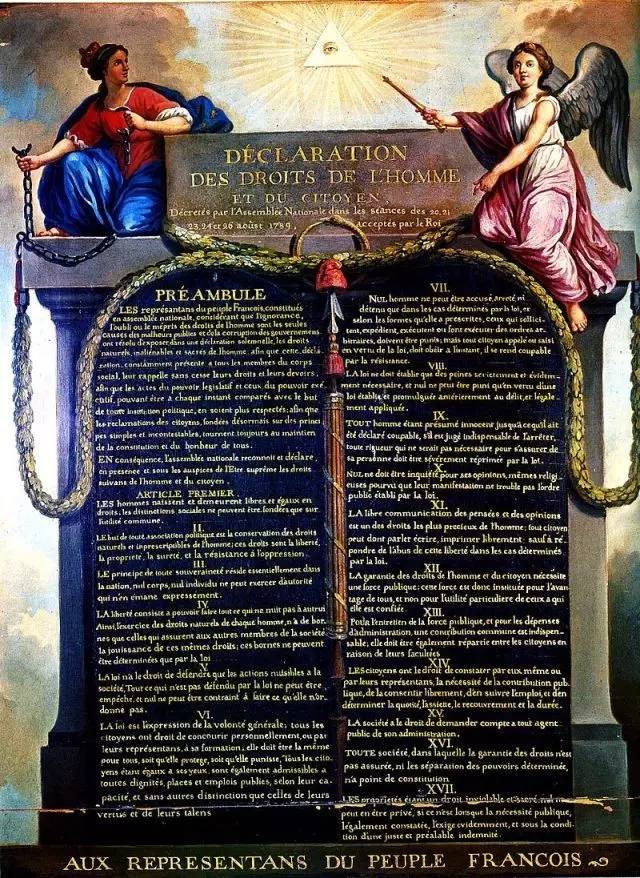 DÉCLARATION
DES DROITS DE L'HOMME
ET DU CITOYEN,
Décretés par l'Assemblée Nationale dans les séances des 20, 21
23, 24 et 26 août 1789, acceptés par le Roi
PRÉAMBULE
LES représantans du peuple Francois, constitués
en assemblée nationale, considérant que l'ignorance,
l'oubli ou le mépris des droits de l'homme sont les seules
causes des malheurs publics et de la corruption des gouvernemens
ont résolu d'exposer dans une déclaration solemnelle, les droits
naturels, inaliénables et sacrés de l'homme, afin que cette, décla
ration, constamment présente a tous les membres du corps
social, leur rappelle sans cesse leurs droits et leurs devoirs,
afin que les actes du pouvoir legislatif et ceux du pouvoir exé
cutif, pouvant être à chaque instant comparés avec le but
de toute institution politique, en soient plus respectés; afin que
les reclamations des citoyens, fondées désormais sur des princi
pes simples et incontestables, tournent toujours au maintien
de la constitution et du bonheur de tous.
EN conséquence, l'assemblée nationale reconnoit et déclare,
en presence et sous les auspices de l'Etre suprême les droits
suivans de l'homme et du citoyen.
ARTICLE PREMIER.
LES hommes naissent et demeurent libres et égaux en
droits, les distinctions sociales ne peuvent être fondées que sur
l'utilité commune.
II.
LE but de toute association politique est la conservation des droits
naturels et inprescriptibles de l'homme; ces droits sont la liberté,
la propriété, la sureté, et la résistance à l'oppression.
III.
LE principe de toute souveraineté réside essentiellement dans
la nation, nul corps, nul individu ne peut exercer d'autorité
qui n'en émane expressement.
IV.
LA liberté consiste a pouvoir faire tout ce qui ne nuit pas à autrui
Ainsi, l'exercice des droits naturels de chaque homme, n'a de bor-
nes que celles qui assurent aux autres membres de la société
la jouissance de ces mêmes droits; ces bornes ne peuvent
être déterminées que par la loi
V.
LA loi n'a le droit de défendre que les actions nuisibles a la
société, Tout ce qui n'est pas défendu par la loi ne peut être
empêché, et nul ne peut être contraint à faire ce qu'elle n'or-
donne pas.
VI.
LA loi est l'expression de la volonté générale; tous les
citoyens ont droit de concourir personnellement, ou par
leurs représentans, à sa formation; elle doit être la même
pour tous, soit qu'elle protege, soit qu'elle punisse, Tous les cito
yens étant égaux a ses yeux, sont également admissibles a
toutes dignités, places et emplois publics, selon leur ca
pacité, et sans autres distinction que celles de leurs
vertus et de leurs talens
VII.
NUL homme ne peut être accusé, arreté, ni
détenu que dans les cas déterminés par la loi, et
selon les formes qu'elle a prescrites, ceux qui sollici-
tent, expédient, exécutent ou font exécuter des ordres ar-
bitraires, doivent être punis; mais tout citoyen appelé ou saisi
en vertu de la loi, doit obéir a l'instant, il se rend coupable
par la résistance.
VIII.
LA loi ne doit établir que des peines strictement et évidem-
ment nécessaire, et nul ne peut être puni qu'en vertu d'une
loi établie et promulguée antérierement au délit, et légale-
ment appliquée.
IX.
TOUT homme étant présumé innocent jusqu'a ce qu'il ait
été déclaré coupable, s'il est jugé indispensable de l'arrêter,
toute rigueur qui ne serait pas nécessaire pour s'assurer de
sa personne doit être sévèrement réprimée par la loi.
X.
NUL ne doit être inquiété pour ses opinions, mêmes religi
euses pourvu que leur manifestation ne trouble pas l'ordre
public établi par la loi.
XI.
LA libre communication des pensées et des opinions
est un des droits les plus precieux de l'homme; tout citoyen
peut dont parler écrire, imprimer librement: sauf a ré-
pondre de l'abus de cette liberté dans les cas déterminés
par la loi.
XII.
LA garantie des droits de l'homme et du citoyen nécessite
une force publique: cette force est donc instituée pour l'avan
tage de tous, et non pour l'utilité particuliere de ceux a qui
elle est confiée.
XIII.
Pour l'entretien de la force publique, et pour les dépenses
d'administration, une contribution commune est indispen-
sable; elle doit être également répartie entre les citoyens en
raison de leurs facultées
XIV.
LES citoyens ont le droit de constater par eux même ou
par leurs représentans, la nécessité de la contribution pub-
lique, de la consentir librement, d'en suivre l'emploi, et d'en
déterminer la quotité, l'assiette, le recouvrement et la durée.
XV.
LA société a le droit de demander compte a tout agent
public de son administration.
XVI.
TOUTE société, dans laquelle la garantie des droits n'est
pas assurée, ni les séparation des pouvoirs déterminée,
n'a point de constitution
XVII.
LES propriétés étant un droit inviolable et sacré, nul ne
peut en être privé, si ce n'est lorsque la nécessité publique,
légalement constatée, l'exige evidemment, et sous la condi-
tion d'une juste et préalable indemnité.
AUX REPRESENTANS DU PEUPLE FRANCOIS